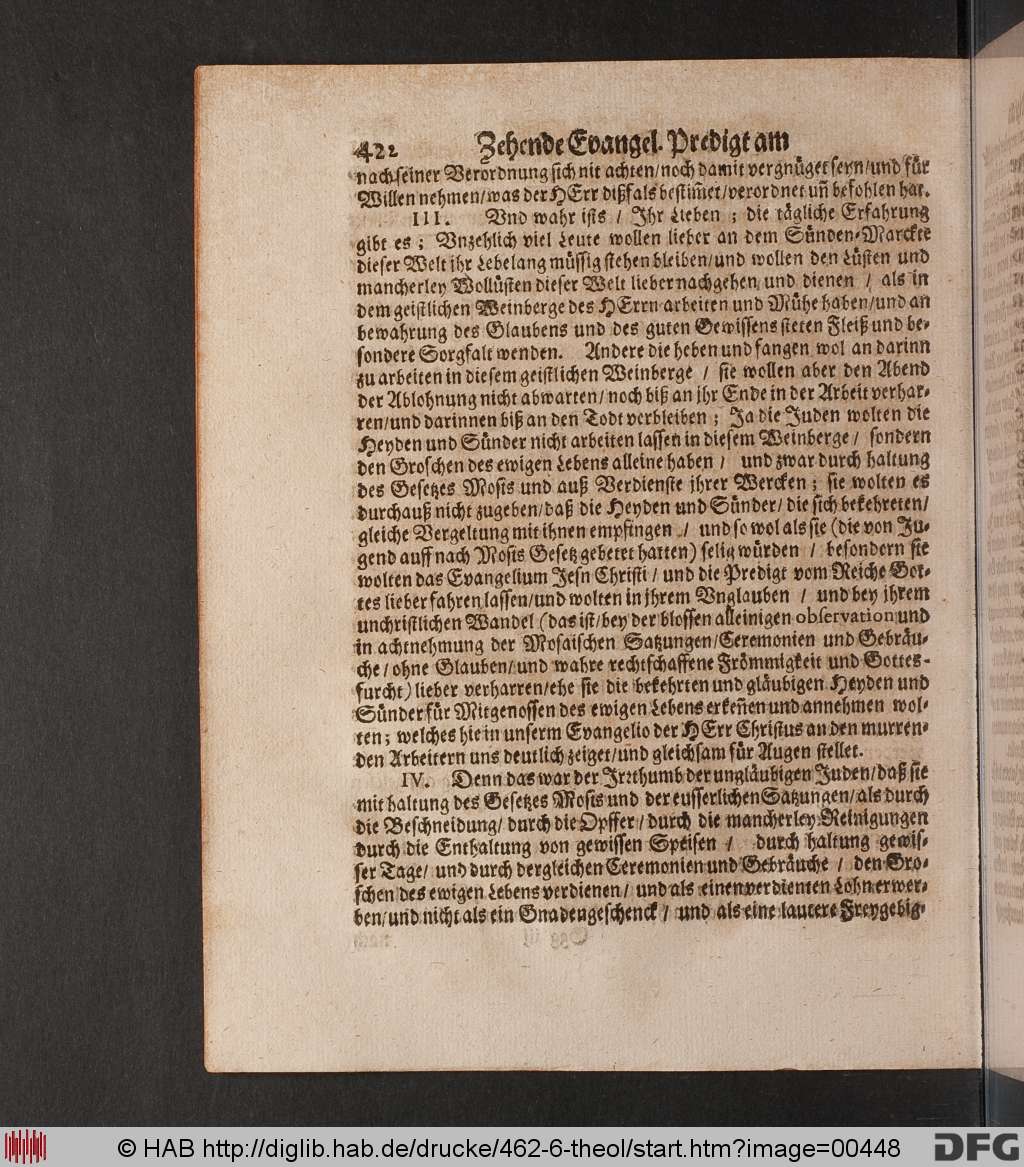 422 Zehende Evangel. Predigt am
nach seiner Verordnung sich nit achten/noch damit vergnüget seyn/und für
Willen nehmen/was der HErr dißfals bestim̃et/verordnet uñ befohlen hat.
III. Vnd wahr ists / Ihr Lieben ; die tägliche Erfahrung
gibt es ; Vnzehlich viel Leute wollen lieber an dem Sünden-Marckte
dieser Welt jhr Lebelang müssig stehen bleiben/und wollen den Lüsten und
mancherley Wollüsten dieser Welt lieber nachgehen und dienen / als in
dem geistlichen Weinberge des HErrn arbeiten und Mühe haben/und an
bewahrung des Glaubens und des guten Gewissens steten Fleiß und be-
sondere Sorgfalt wenden. Andere die heben und fangen wol an darinn
zu arbeiten in diesem geistlichen Weinberge / sie wollen aber den Abend
der Ablohnung nicht abwarten/noch biß an jhr Ende in der Arbeit verhar-
ren/und darinnen biß an den Todt verbleiben ; Ja die Juden wolten die
Heyden und Sünder nicht arbeiten lassen in diesem Weinberge / sondern
den Groschen des ewigen Lebens alleine haben / und zwar durch haltung
des Gesetzes Mosis und auß Verdienste jhrer Wercken ; sie wolten es
durchauß nicht zugeben/daß die Heyden und Sünder/die sich bekehreten/
gleiche Vergeltung mit ihnen empfingen / und so wol als sie (die von Ju-
gend auff nach Mosis Gesetz gebetet hatten) selig würden / besondern sie
wolten das Evangelium Jesu Christi / und die Predigt vom Reiche Got-
tes lieber fahren lassen/und wolten in jhrem Vnglauben / und bey jhrem
unchristlichen Wandel (das ist/bey der blossen alleinigen observation und
in achtnehmung der Mosaischen Satzungen/Ceremonien und Gebräu-
che/ohne Glauben/und wahre rechtschaffene Frömmigkeit und Gottes-
furcht) lieber verharren/ehe sie die bekehrten und gläubigen Heyden und
Sünder für Mitgenossen des ewigen Lebens erkeñen und annehmen wol-
ten; welches hie in unserm Evangelio der HErr Christus an den murren-
den Arbeitern uns deutlich zeiget/und gleichsam für Augen stellet.
IV. Denn das war der Irrthumb der ungläubigen Juden/daß sie
mit haltung des Gesetzes Mosis und der eusserlichen Satzungen/als durch
die Beschneidung/durch die Opffer/durch die mancherley Reinigungen
durch die Enthaltung von gewissen Speisen / durch haltung gewis-
ser Tage/ und durch dergleichen Ceremonien und Gebräuche / den Gro-
schen des ewigen Lebens verdienen/ und als einen verdienten Lohn erwer-
ben/und nicht als ein Gnadengeschenck / und als eine lautere Freygebig-
© HAB http://diglib.hab.de/drucke/462-6-theol/start.htm?image=00448
DFG